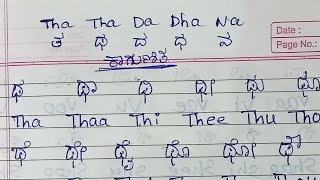 Tha Tha Da Dha Na
Date :
ತ ಥ ದ ಧ ನ
Page No.:
ಕಾಗುಣಿತ
ಥ ಥಾ ಥಿ ಥೀ ಥು ಥೂ
Tha Thaa Thi Thee Thu Tho
ಥೆ ಥೇ ಥೈ ಥೊ ಥೋ ಥೌ